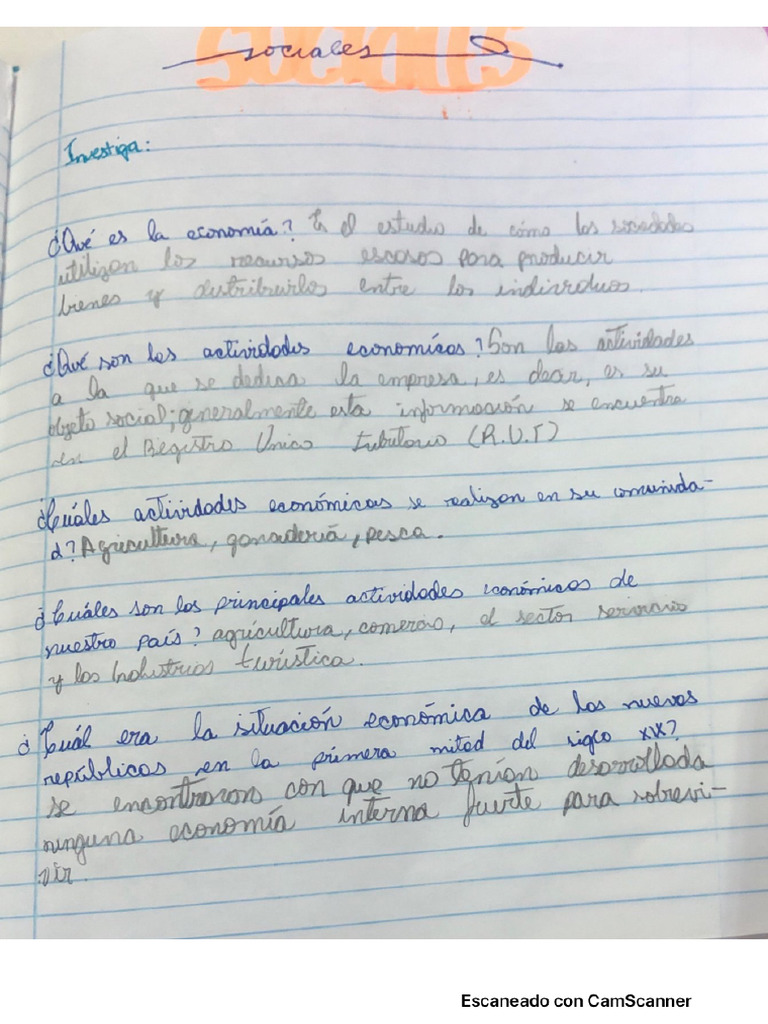 sociales
Investiga:
¿Qué es la economía? Es el estudio de cómo las sociedades
utilizan los recursos escasos para producir
bienes y distribuirlos entre los individuos.
¿Qué son las actividades económicas? Son las actividades
a la que se dedica la empresa, es decir, es su
objeto social; generalmente esta información se encuentra
en el Registro Unico tributario (R.U.T)
¿Cuáles actividades económicas se realizan en su comunida-
d? Agricultura, ganadería, pesca.
¿Cuáles son las principales actividades económicas de
nuestro país? agricultura, comercio, el sector servicio
y las Industrias turística.
¿Cuál era la situación económica de las nuevas
repúblicas en la primera mitad del siglo XIX?
se encontraron con que no tenían desarrollada
ninguna economía interna fuerte para sobrevi-
vir.
Escaneado con CamScanner